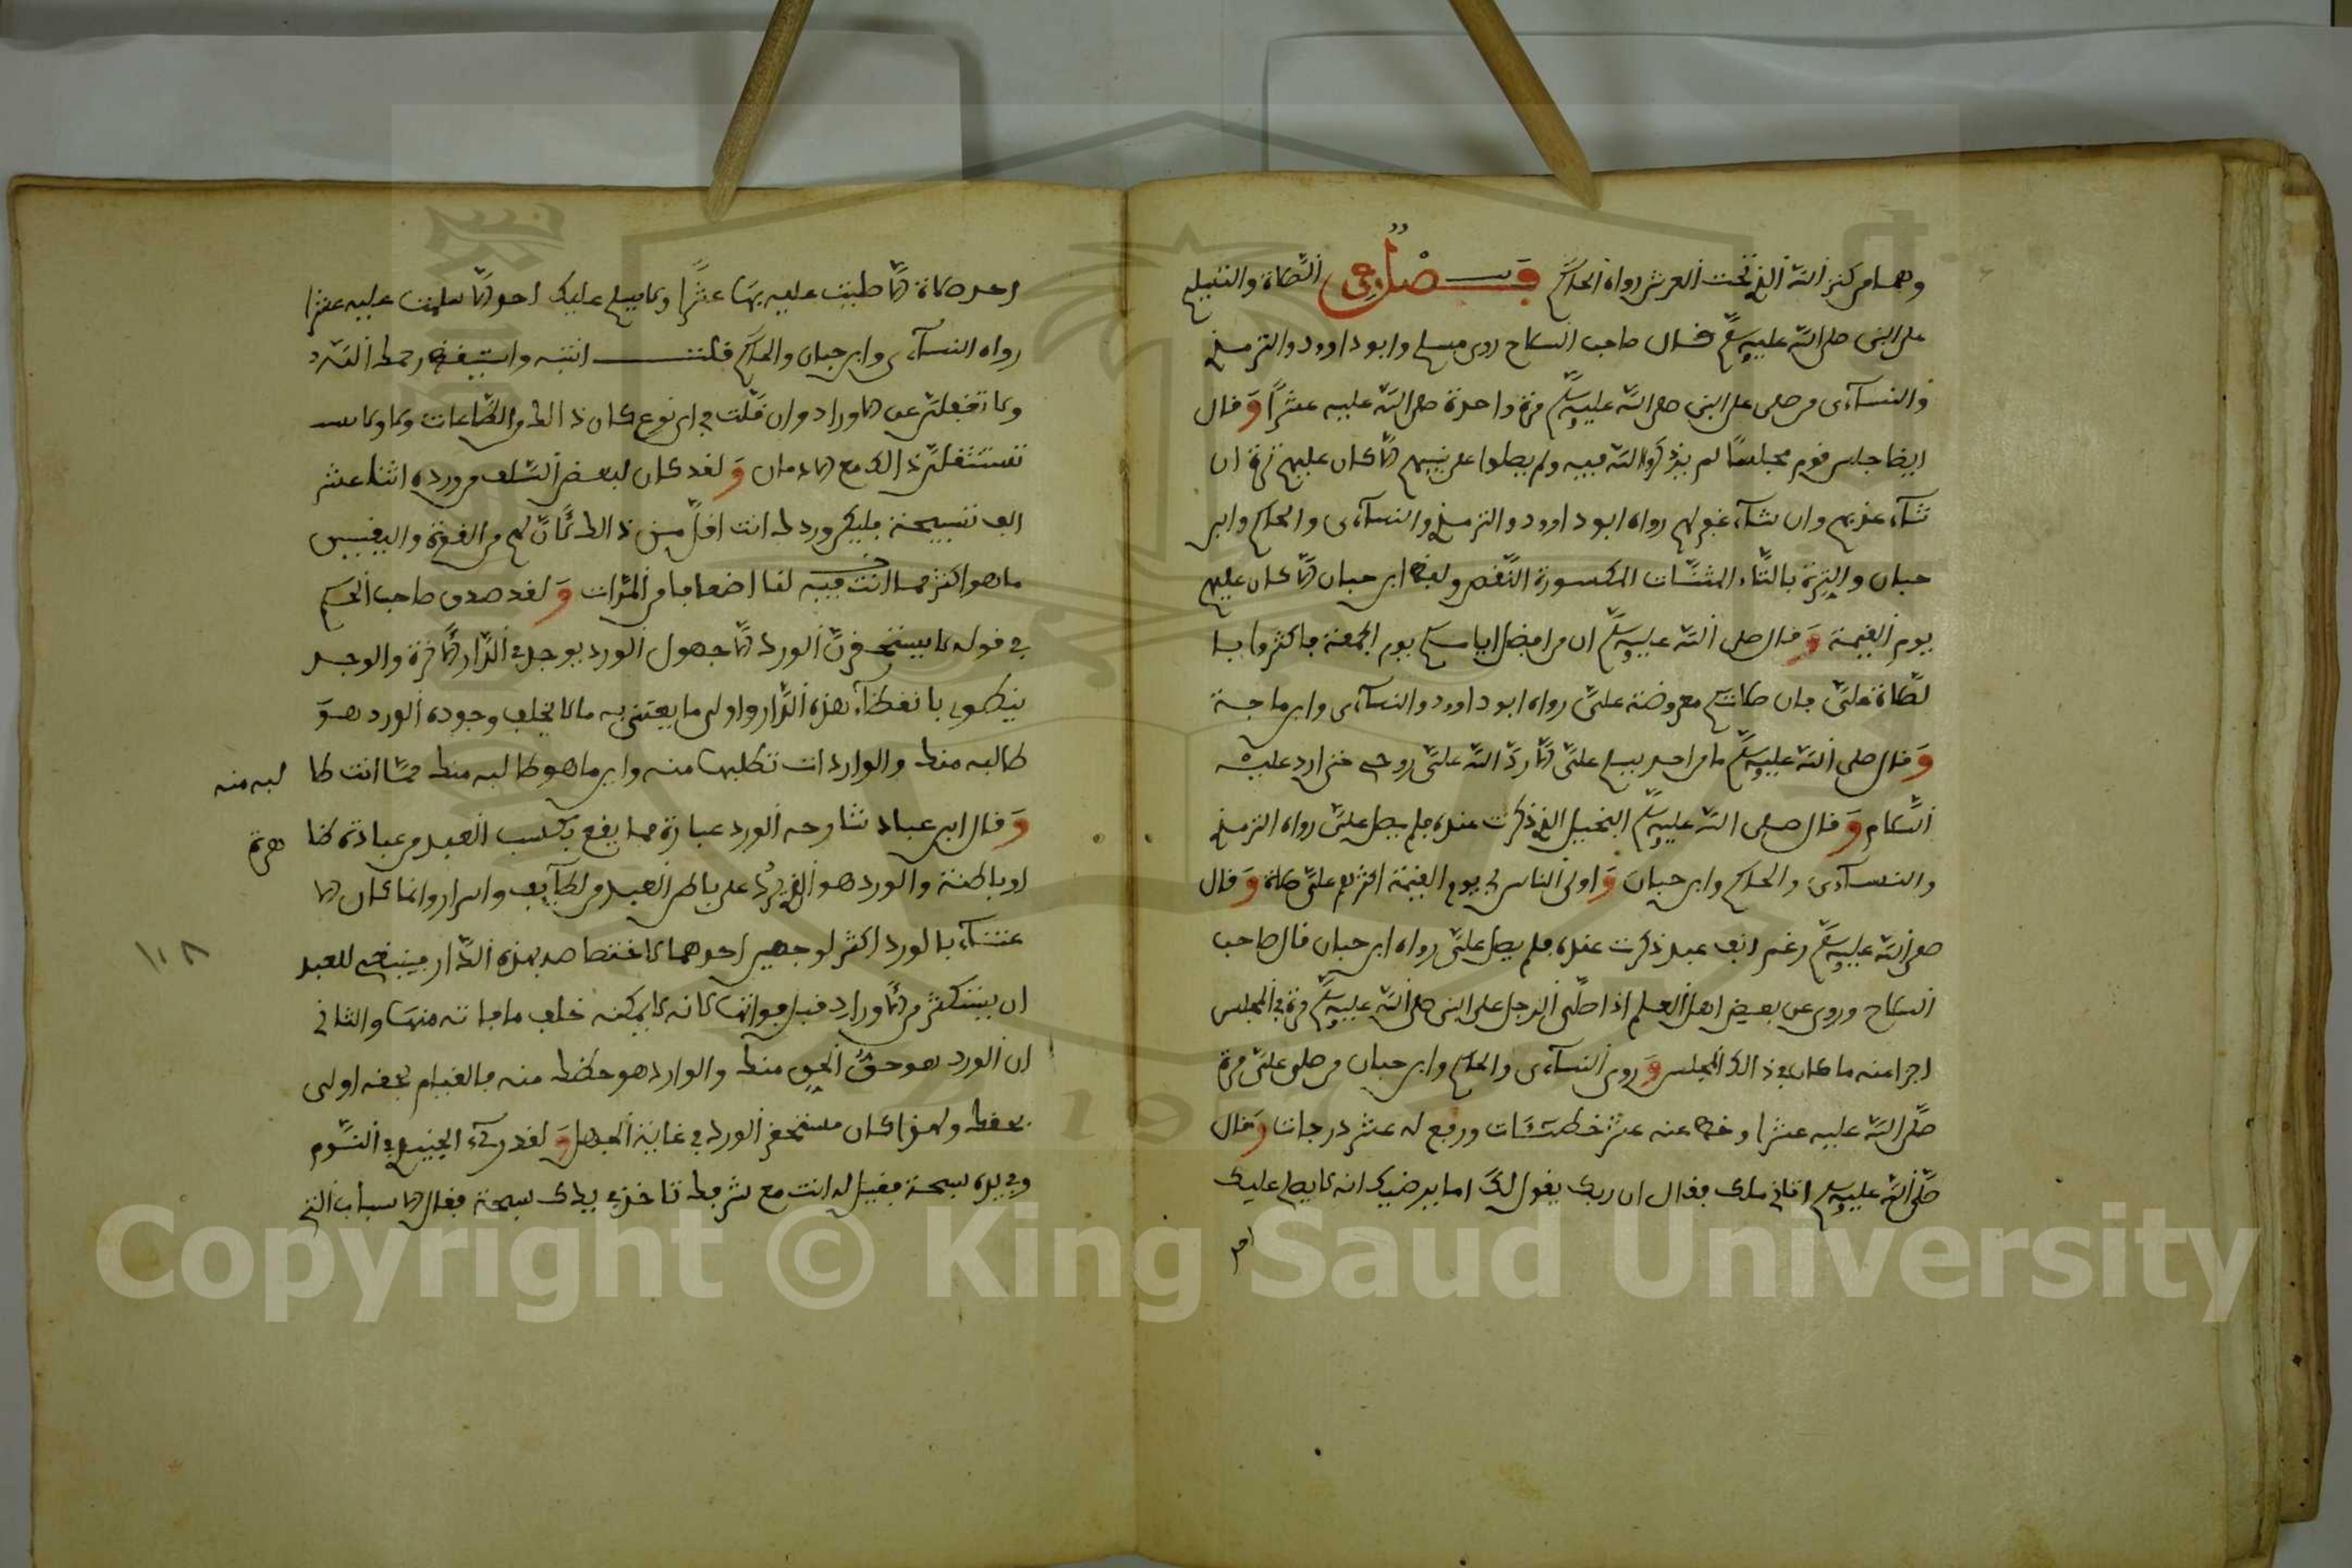 وهما من كنز الله الذي تحت العرش رواه الحاكم فصل في الصلاة والتسليم
على النبي صلى الله عليه وسلم قال صاحب السلاح روى مسلم وابو داوود والترمذي
والنسآءى من صلى على النبي صلى الله عليه وسلم مرة واحدة صلى الله عليه عشرا وقال
ايضا ما جلس قوم مجلسا لم يذكروا الله فيه ولم يصلوا على نبيهم الا كان عليهم ترة ان
شآء عذبهم وان شآء غفر لهم رواه ابو داوود والترمذي والنسآءى والحاكم وابن
حبان والترة بالتاء المثنات المكسورة النقص ولفظ ابن حبان الا كان عليهم
يوم القيمة وقال صلى الله عليه وسلم ان من افضل ايامكم يوم الجمعة فاكثروا من ا
لصلاة على فان صلاتكم معروضة على رواه ابو داوود والنسآءى وابن ماجة
وقال صلى الله عليه وسلم ما من احد يسلم على الا رد الله على روحي حتى ارد عليه
السلام وقال صلى الله عليه وسلم البخيل الذي ذكرت عنده فلم يصل على رواه الترمذي
والنسآءى والحاكم وابن حبان واولى الناس بي يوم القيمة اكثرهم على صلاة وقال
صلى الله عليه وسلم رغم انف عبد ذكرت عنده فلم يصل على رواه ابن حبان قال صاحب
السلاح وروى عن بعض اهل العلم اذا صلى الرجل على النبي صلى الله عليه وسلم مرة في المجلس
اجزا عنه ما كان في ذالك المجلس وروى النسآءى والحاكم وابن حبان من صلى على مرة
صلى الله عليه عشرا وحط عنه عشر خطيئات ورفع له عشر درجات وقال
صلى الله عليه وسلم اتاني ملك فقال ان ربك يقول لك اما يرضيك انه لا يصلى عليك
احد صلاة الا صليت عليه بها عشرا ولا يسلم عليك احد الا سلمت عليه عشرا
رواه النسآءى وابن حبان والحاكم قلت انتبه واستيقظ رحمك الله
ولا تغفلن عن الاوراد وان قلت في اى نوع كان ذالك من الطاعات ولا
تستثقلن ذالك مع الادمان ولقد كان لبعض السلف من ورده اثنا عشر
الف تسبيحة فليكن وردك انت اقل من ذالك لان لهم من القوة واليقين
ما هو اكثر مما انت فيه لقا اضعافا من المرات ولقد صدق صاحب الحكم
في قوله لا يستحقرن الورد الا جهول الورد يوجد في الدار الاخرة والوجد
ينطوي بانطوآء هذه الدار واولى ما يعتنى به ما لا يخلف وجوده الورد هو
طالبه منك والواردات تطلبها منه واين ما هو طالبه منك مما انت طا لبه منه
وقال ابن عباد شارحه الورد عبارة مما يقع بكسب العبد من عبادة ظا هرة
او باطنة والوارد هو الذي يرد على باطن العبد من لطايف واسرار وانما كان الا
عتنآء بالورد اكثر لوجهين احدهما لاختصاصه بهذه الدار فينبغي للعبد
ان يستكثر من الاوراد قبل فواتها لانه لا يمكنه خلف ما فاته منها والثاني
ان الورد هو حق الحق منك والوارد هو حظك منه فالقيام بحقه اولى
بحقك ولهذا كان مستحقر الورد في غاية الجهل ولقد رىء الجنيد في النوم
وفي يده سبحة فقيل له انت مع شرفك تاخذ في يدك سبحة فقال الاسباب التي
١٠٨